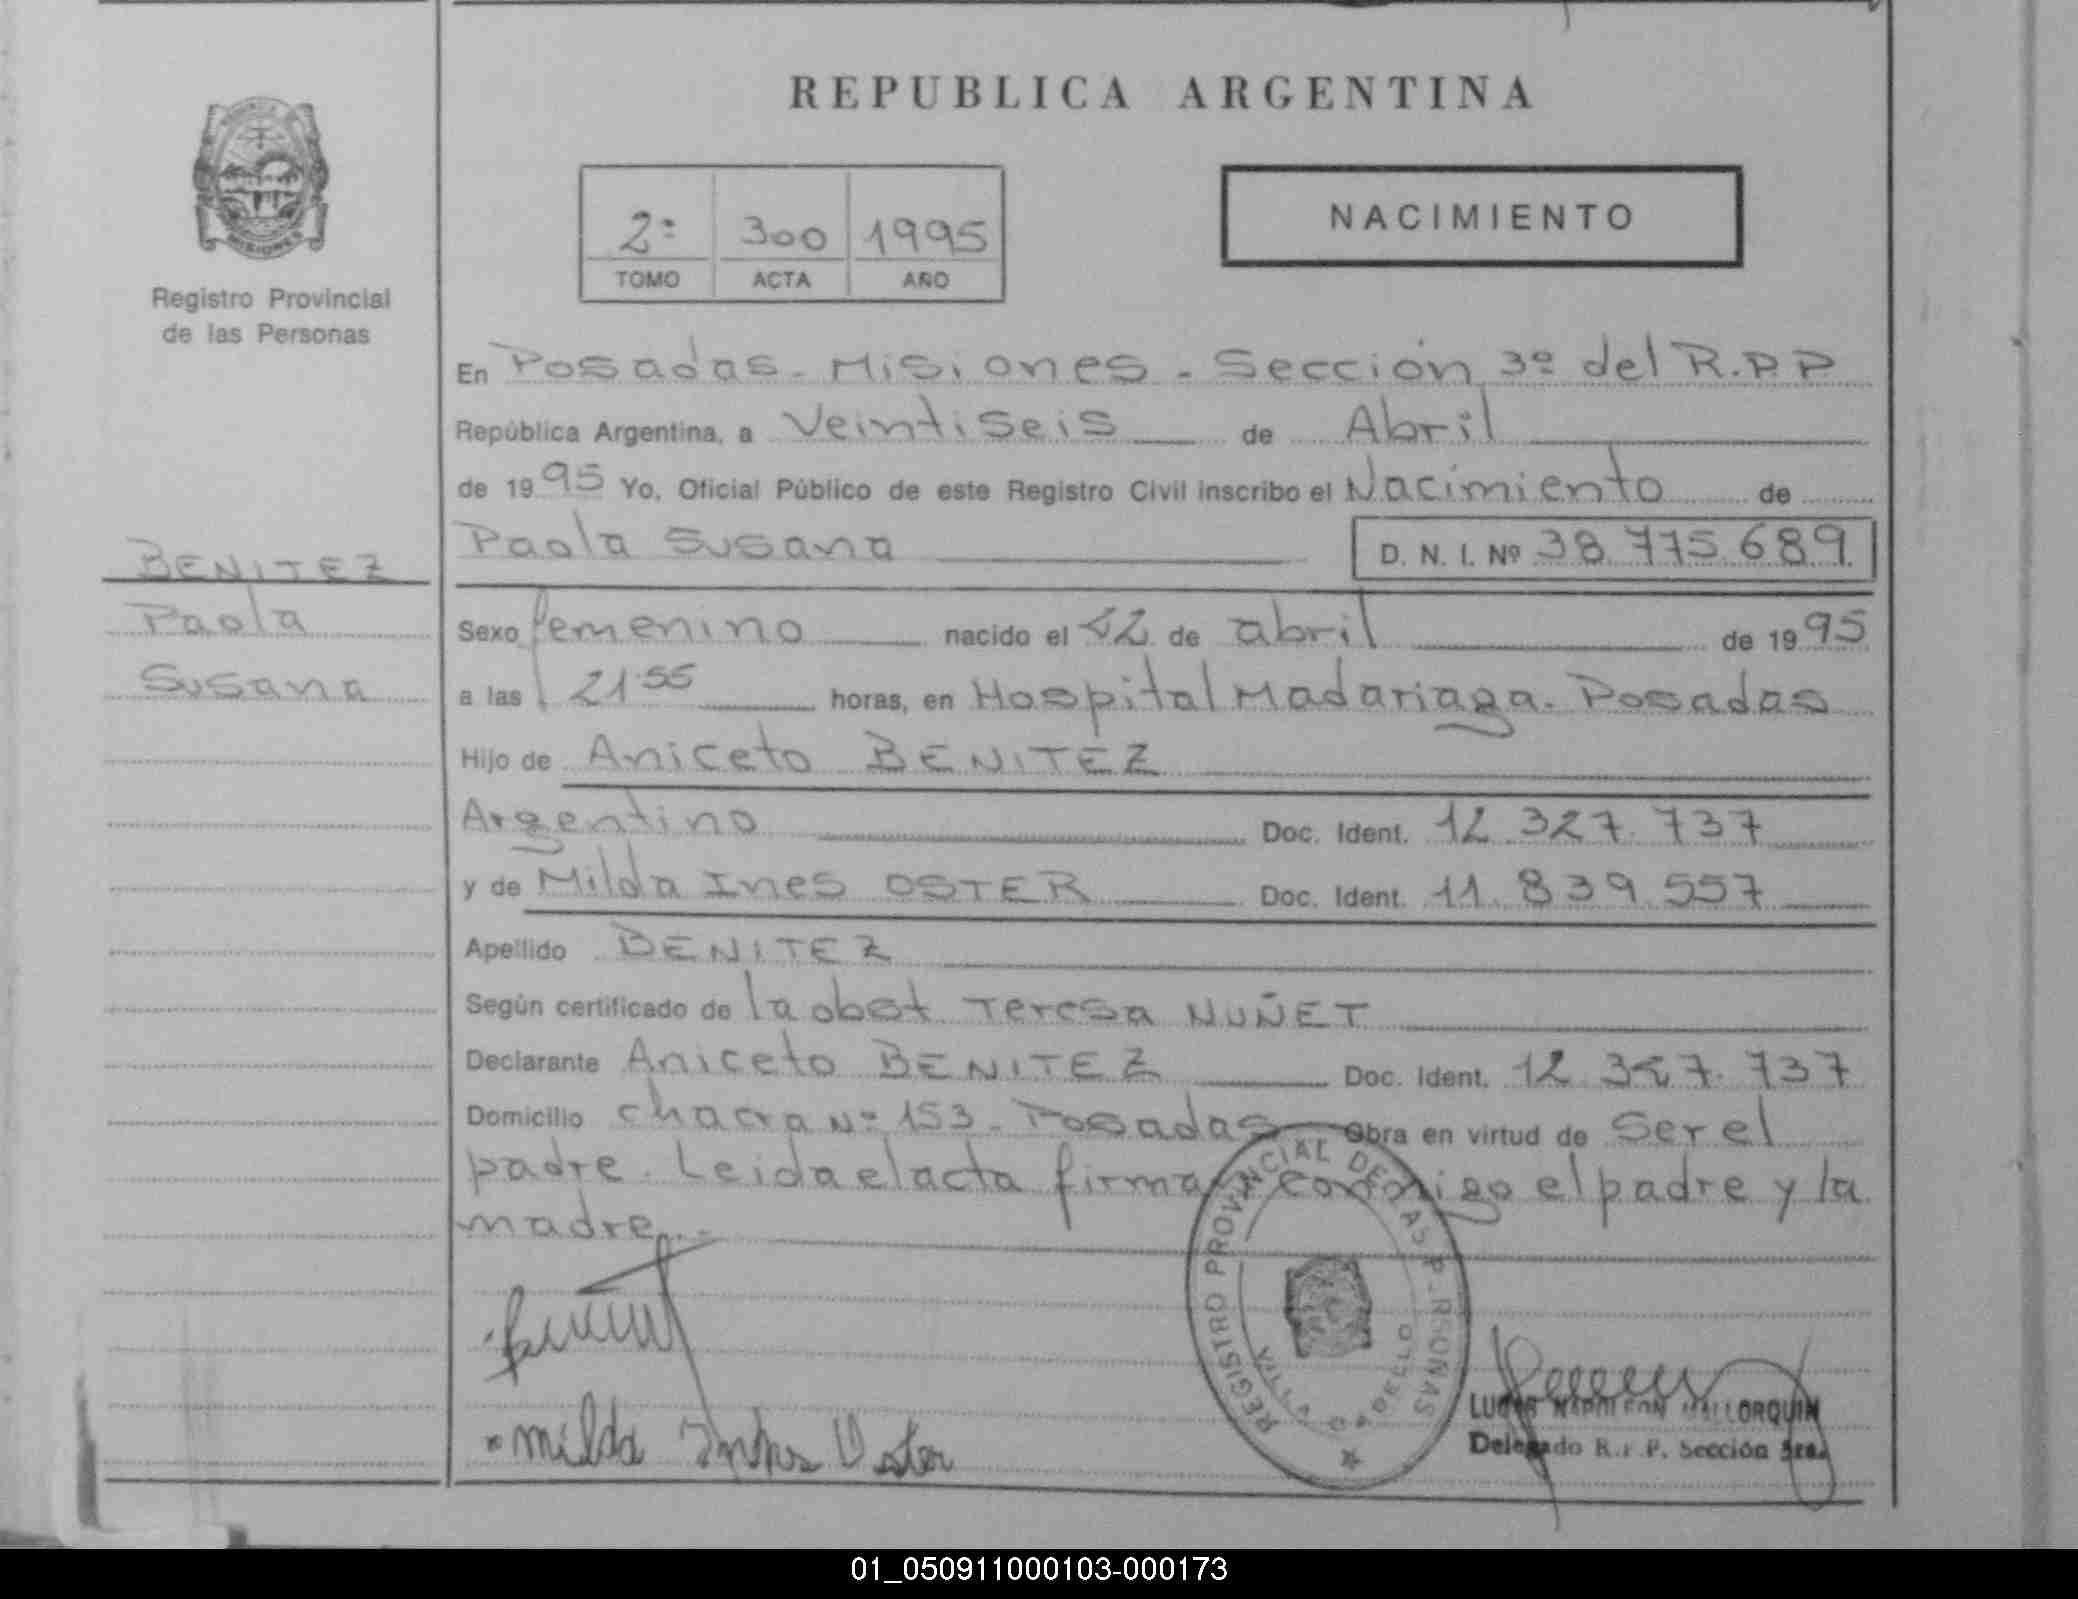 REPUBLICA ARGENTINA
MISIONES
Registro Provincial
de las Personas
2º 300 1995
TOMO ACTA AÑO
NACIMIENTO
En Posadas - Misiones - Sección 3º del R.P.P
República Argentina, a Veintiseis de Abril
de 1995 Yo, Oficial Público de este Registro Civil inscribo el Nacimiento de
Paola Susana D. N. I. Nº 38.775.689
BENITEZ
Paola
Susana
Sexo femenino nacido el de abril de 1995
a las 21.55 horas, en Hospital Madariaga. Posadas
Hijo de Aniceto BENITEZ
Argentino Doc. Ident. 12.327.737
y de Milda Ines OSTER Doc. Ident. 11.839.557
Apellido BENITEZ
Según certificado de la obst Teresa NUÑET
Declarante Aniceto BENITEZ Doc. Ident. 12.327.737
Domicilio chacra Nº 153 - Posadas Obra en virtud de Ser el
padre. Leida el acta firman conmigo el padre y la
madre.-
REGISTRO PROVINCIAL DE LAS PERSONAS
Milda Oster
MALLORQUIN
Delegado R. P. Sección 3ra.
01_050911000103-000173